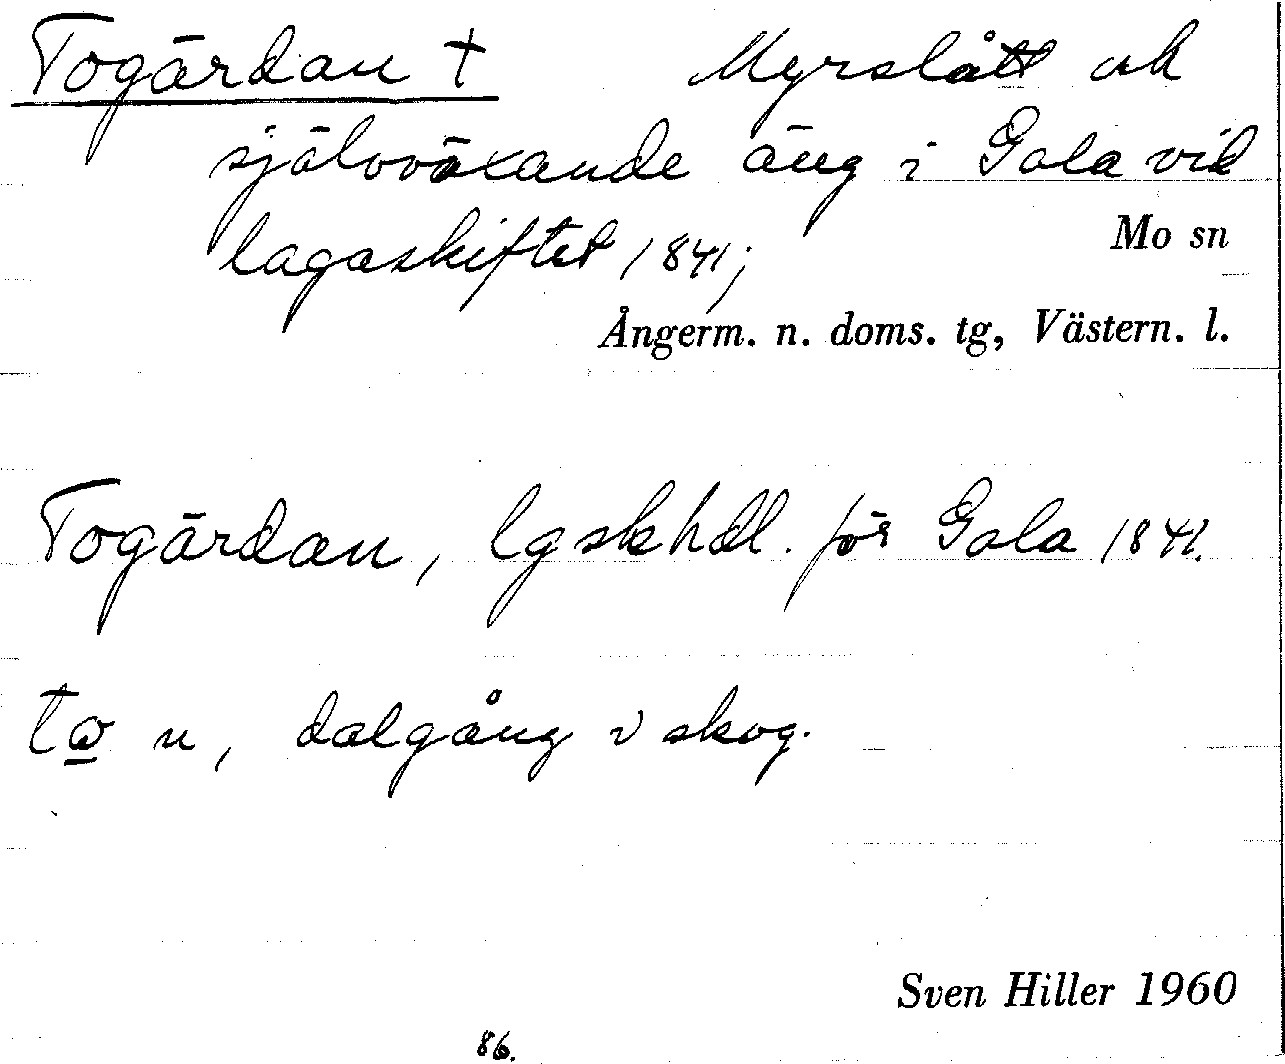 Togärdan † Myrslått och
självväxande äng i Gala vid
lagaskiftet 1841;
Mo sn
Ångerm. n. doms. tg, Västern. l.
Togärdan, lgskhdl. för Gala 1841.
to n, dalgång i skog.
Sven Hiller 1960
86.